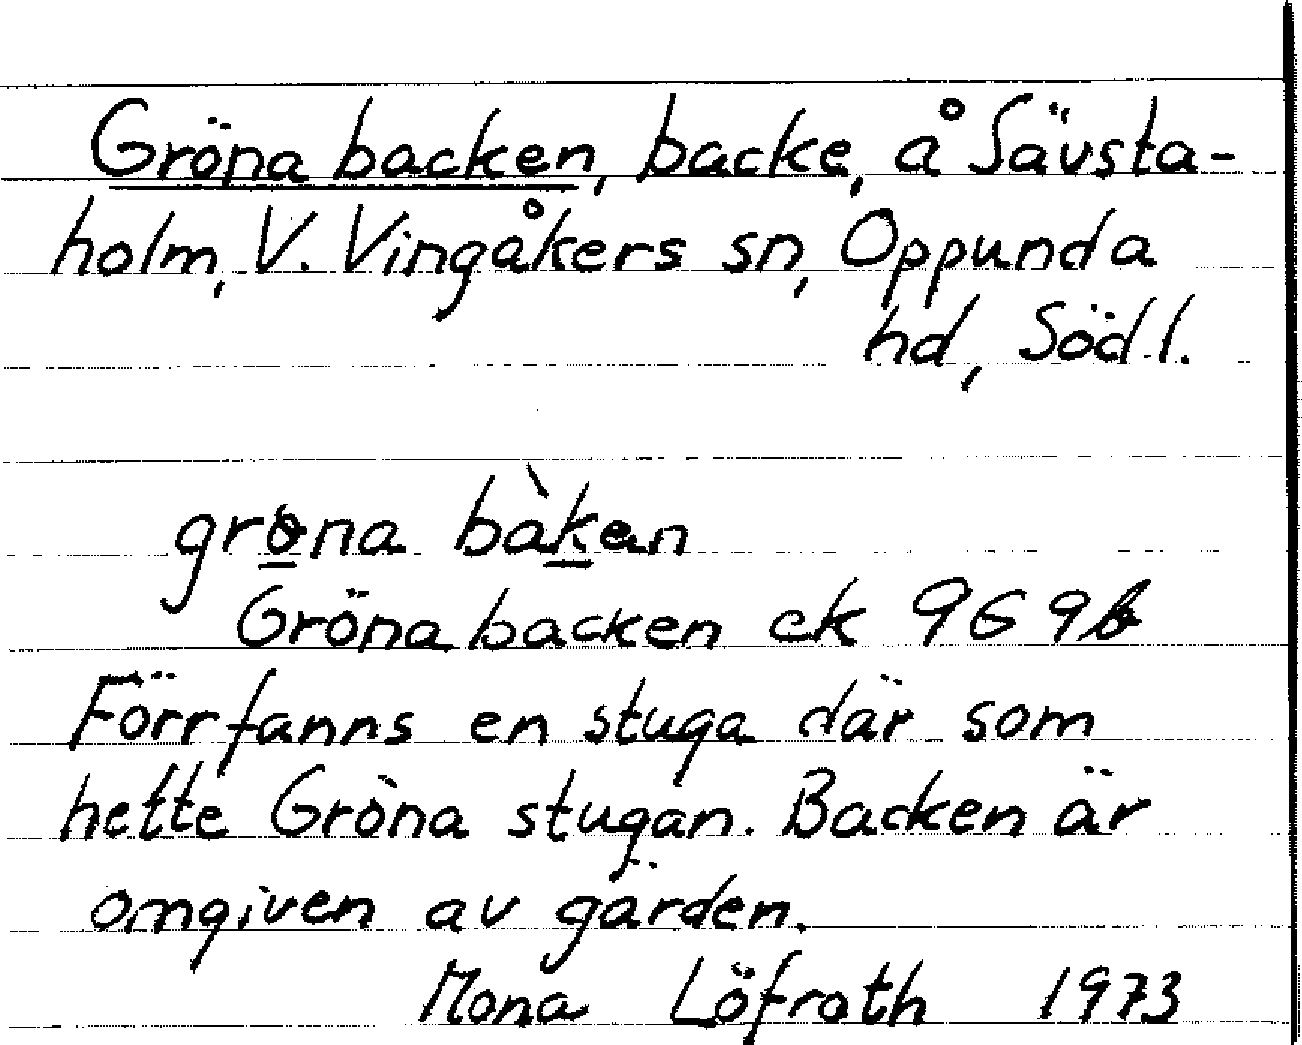 Gröna backen, backe, å Sävsta-
holm, V. Vingåkers sn, Oppunda
hd, Södl.
grøna bàken
Gröna backen ek 9G9b
Förr fanns en stuga där som
hette Gröna stugan. Backen är
omgiven av gärden.
Mona Löfroth 1973